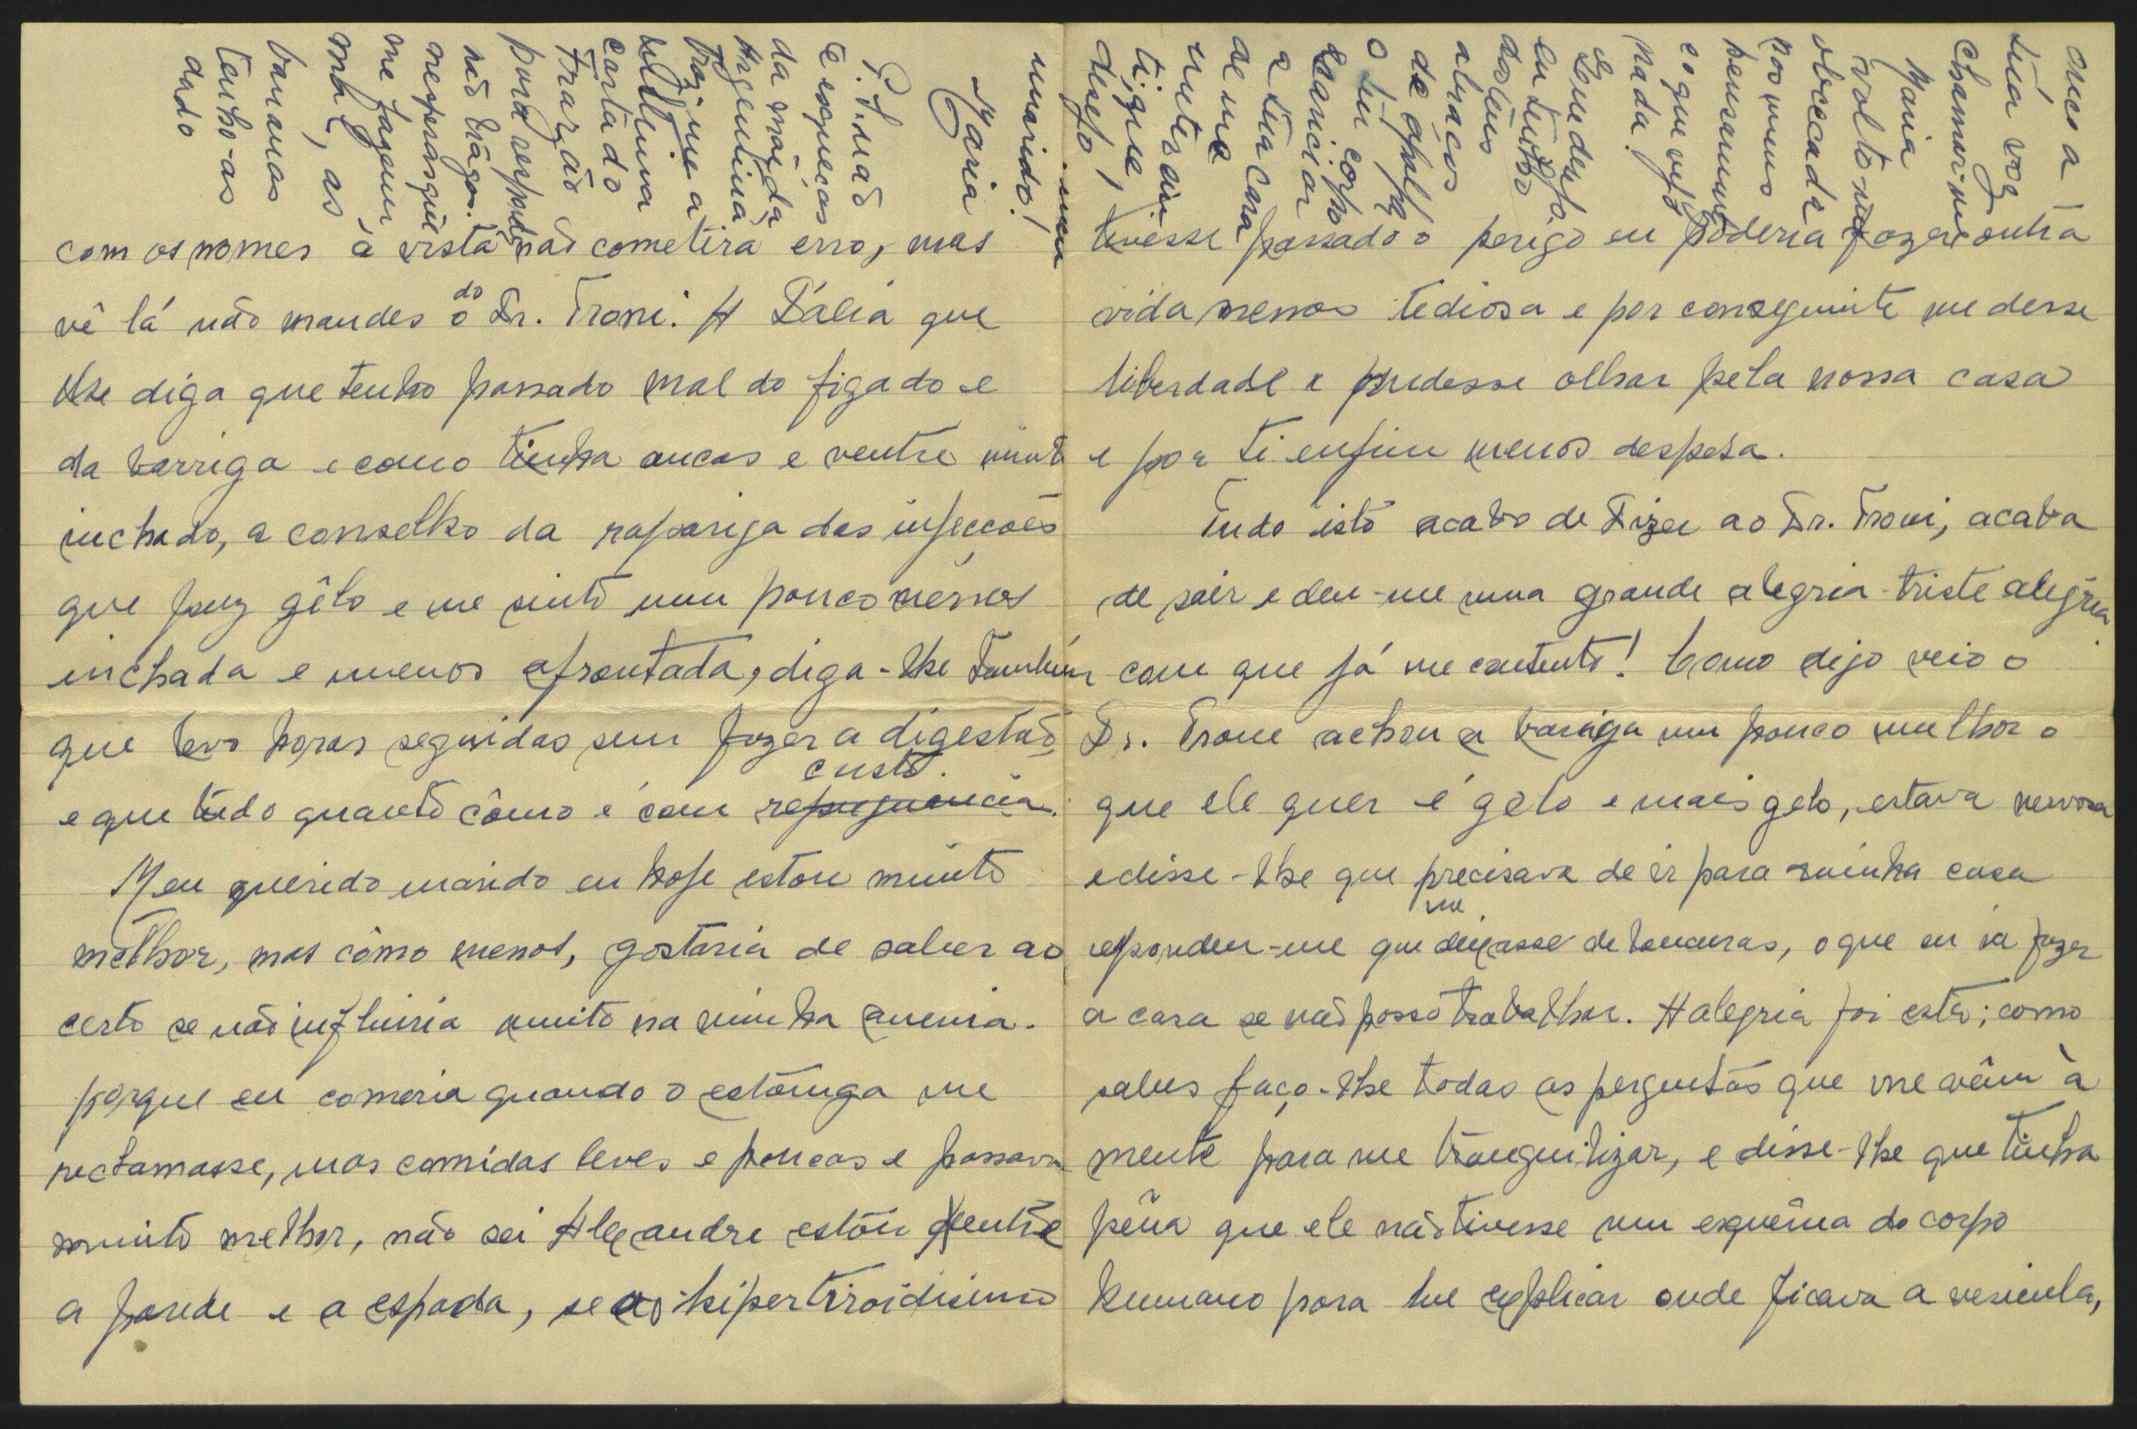 com os nomes à vista não cometirá erro, mas
vê lá não mandes o do Dr. Troni. A Dália que
lhe diga que tenho passado mal do figado e
da barriga e como tinha ancas e ventre muito
inchado, a conselho da rapariga das injecções
que faz gêlo e me sinto um pouco menos
inchada e menos afrontada, diga-lhe tambêm
que levo horas seguidas sem fazer a digestão
custo.
e que tudo quanto cômo é com repugnancia.
Meu querido marido eu hoje estou muito
melhor, mas cômo menos, gostaria de saber ao
certo se não influiria muito na minha anemia.
porque eu comeria quando o estômago me
reclamasse, mas comidas leves e poucas e passava
muito melhor, não sei Alexandre estou entre
a parede e a espada, se ao hipertiroidismo
tivesse passado o perigo eu poderia fazer outra
vida menos tediosa e por conseguinte me desse
liberdade e pudesse olhar pela nossa casa
e por ti enfim menos despesa.
Tudo isto acabo de dizer ao Dr. Troni, acaba
de sair e deu-me uma grande alegria - triste alegria
com que já me contento! Como digo veio o
Dr. Troni achou a barriga um pouco melhor o
que ele quer é gelo e mais gelo, estava nervosa
e disse-lhe que precisava de ir para minha casa
me
respondeu-me que deixasse de loucuras, o que eu ia fazer
a casa se não posso trabalhar. A alegria foi esta; como
sabes faço-lhe todas as perguntas que me vêm à
mente para me tranquilizar, e disse-lhe que tinha
pêna que ele não tivesse um esquêma do corpo
humano para me explicar onde ficava a vesicula,
ouço a
tua voz
chamar-me
Maria
volto não
obcecada
nos meus
pensamentos
e o que vejo
nada!
Quando
eu tenho
dos teus
abraços
de
o teu corpo
acariciar
a tua cara
de
tigre,
desejo!
meu
marido!
Maria
P.S. não
te esqueças
da mãe da
Argentina
traz-me a
carta do
Frazão
para responder
não tragas.
me fazem
mal, as
bananas
tenho-as
dado